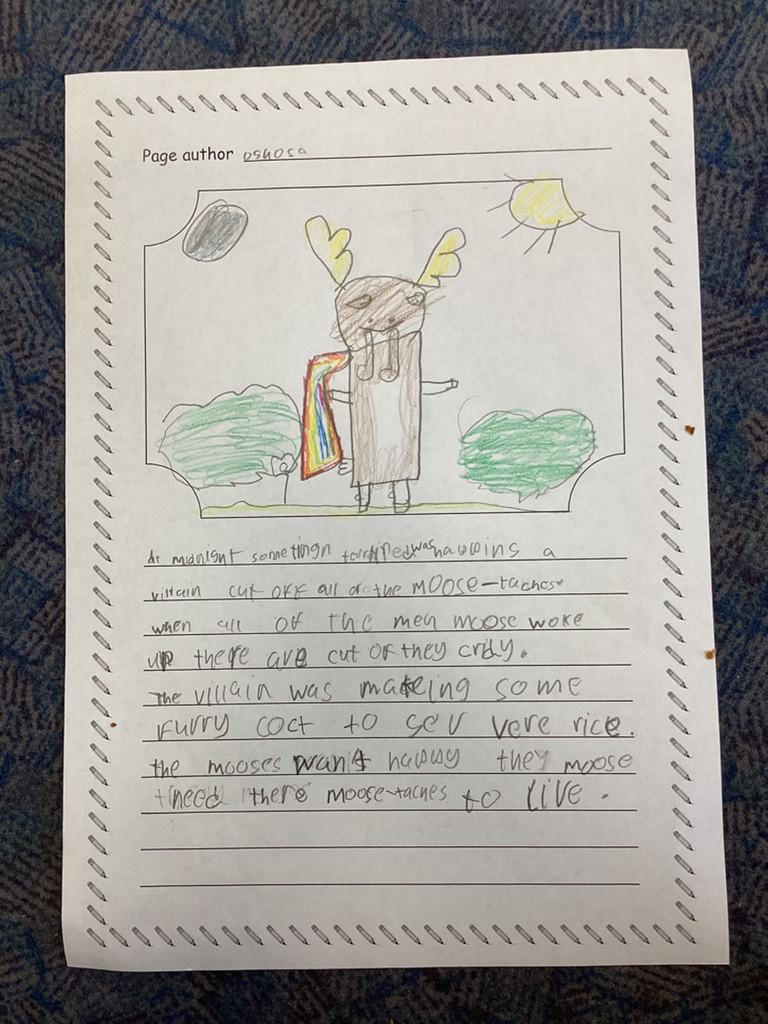 Page author osuosa
At midnight sometingn terrified was hawwins a
villain cut off all of the moose-taches
when all of the men moose woke
up there are cut of they cridy.
The villain was makeing some
furry coct to seu vere rice.
the mooses wan't hawwy they moose
need there moose-taches to live.